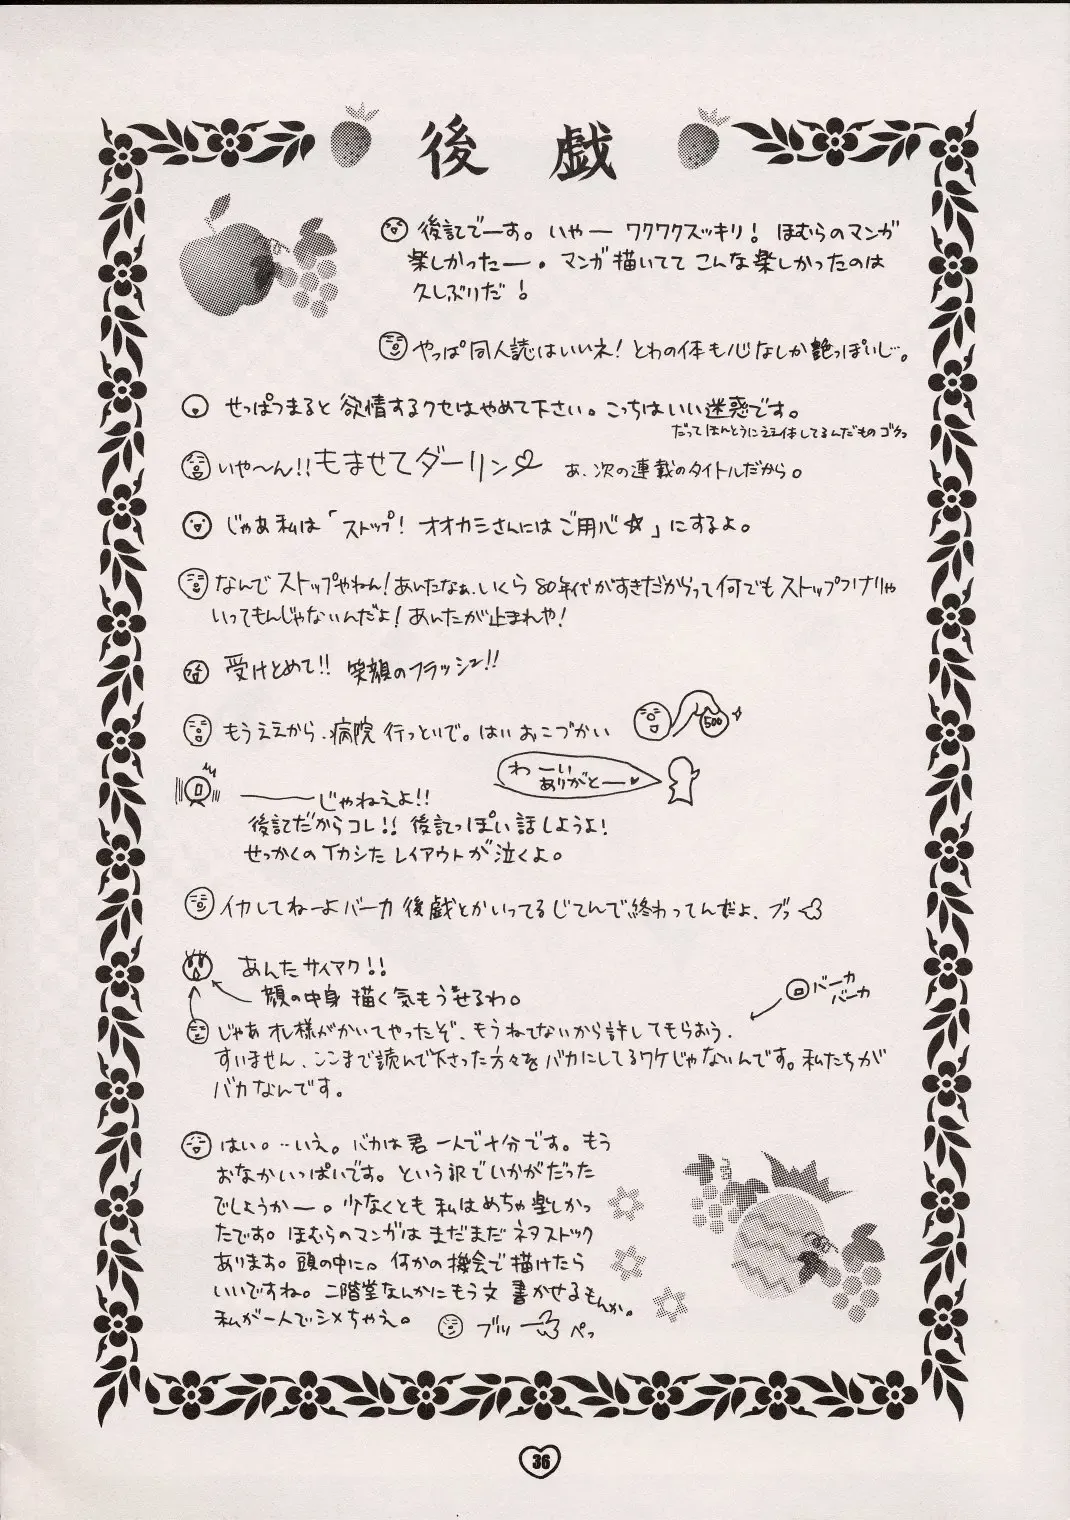 後戯
後記でーす。いやー ワクワクスッキリ! ほむらのマンガ
楽しかったー。マンガ描いてて こんな楽しかったのは
久しぶりだ!
やっぱ同人誌はいいネ! とわの体も心なしか艶っぽいし。
せっぱつまると 欲情するクセはやめて下さい。こっちはいい迷惑です。
だって ほんとうにええ体してるんだもの ゴクッ
いや〜ん!! もませてダーリン♡ あ、次の連載のタイトルだから。
じゃあ 私は「ストップ! オオカミさんにはご用心☆」にするよ。
なんで ストップやねん! あんたなぁ、いくら 80年代がすきだからって何でも ストップつけりゃ
いいってもんじゃないんだよ! あんたが止まれや!
受けとめて!! 笑顔のフラッシュ!!
もうええから、病院行っといで。はい おこづかい
500
わーい
ありがとー♥
――じゃねえよ!!
後記だからコレ!! 後記っぽい話しようよ!
せっかくの イカシた レイアウトが泣くよ。
イカしてねーよバーカ 後戯とかいってるじてんで終わってんだよ、ブッ
あんた サイアク!!
顔の中身 描く気もうせるわ。
バーカ
バーカ
じゃあ オレ様がかいてやったぞ、もうねてないから許してもらおう。
すいません、ここまで読んで下さった方々を バカにしてるワケじゃないんです。私たちが
バカなんです。
はい。…いえ。バカは君一人で十分です。もう
おなかいっぱいです。という訳でいかがだった
でしょうかー。少なくとも 私はめちゃ楽しかっ
たです。ほむらのマンガは まだまだ ネタストック
あります。頭の中に。何かの機会で描けたら
いいですね。二階堂なんかにもう文 書かせるもんか。
私が一人でシメちゃえ。 ブリッ ペっ
36